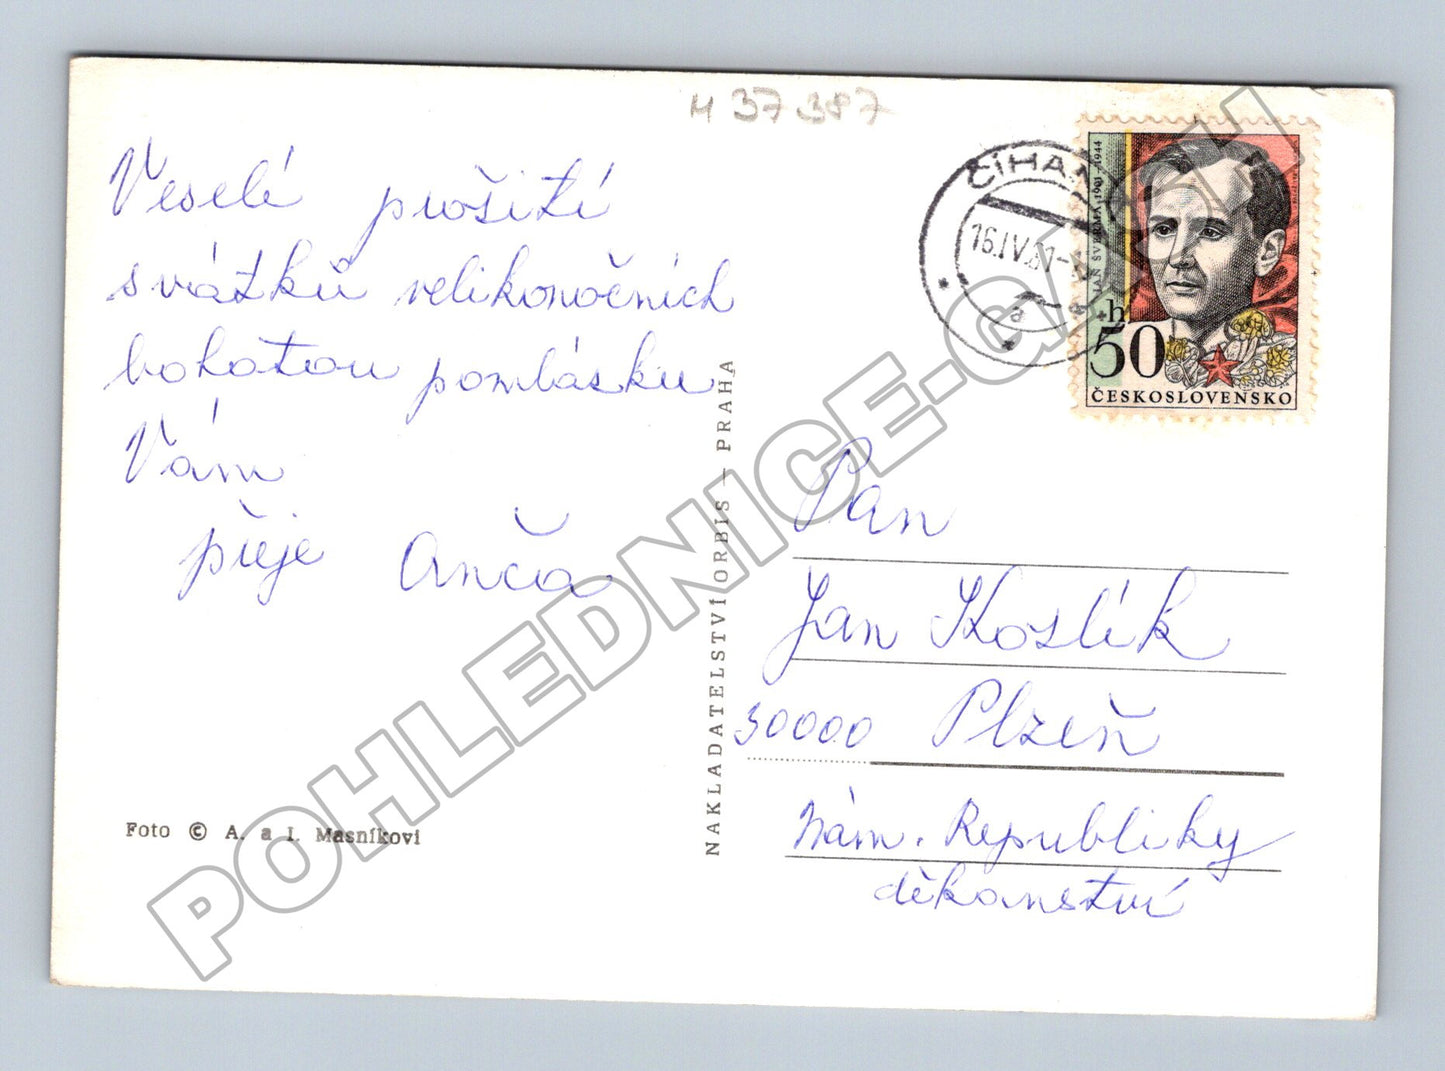 H 37 387
Veselé prožití
svátků velikonočních
bohatou pomlásku
Vám
přeje Anča
Foto © A. a I. Masníkovi
NAKLADATELSTVÍ ORBIS — PRAHA
ČÍHAŇ
16.IV.
a
JAN ŠVERMA 1901-1944
+h
50
ČESKOSLOVENSKO
Pan
Jan Koslík
30000 Plzeň
Nám. Republiky
děkanství
POHLEDNICE-GARCH